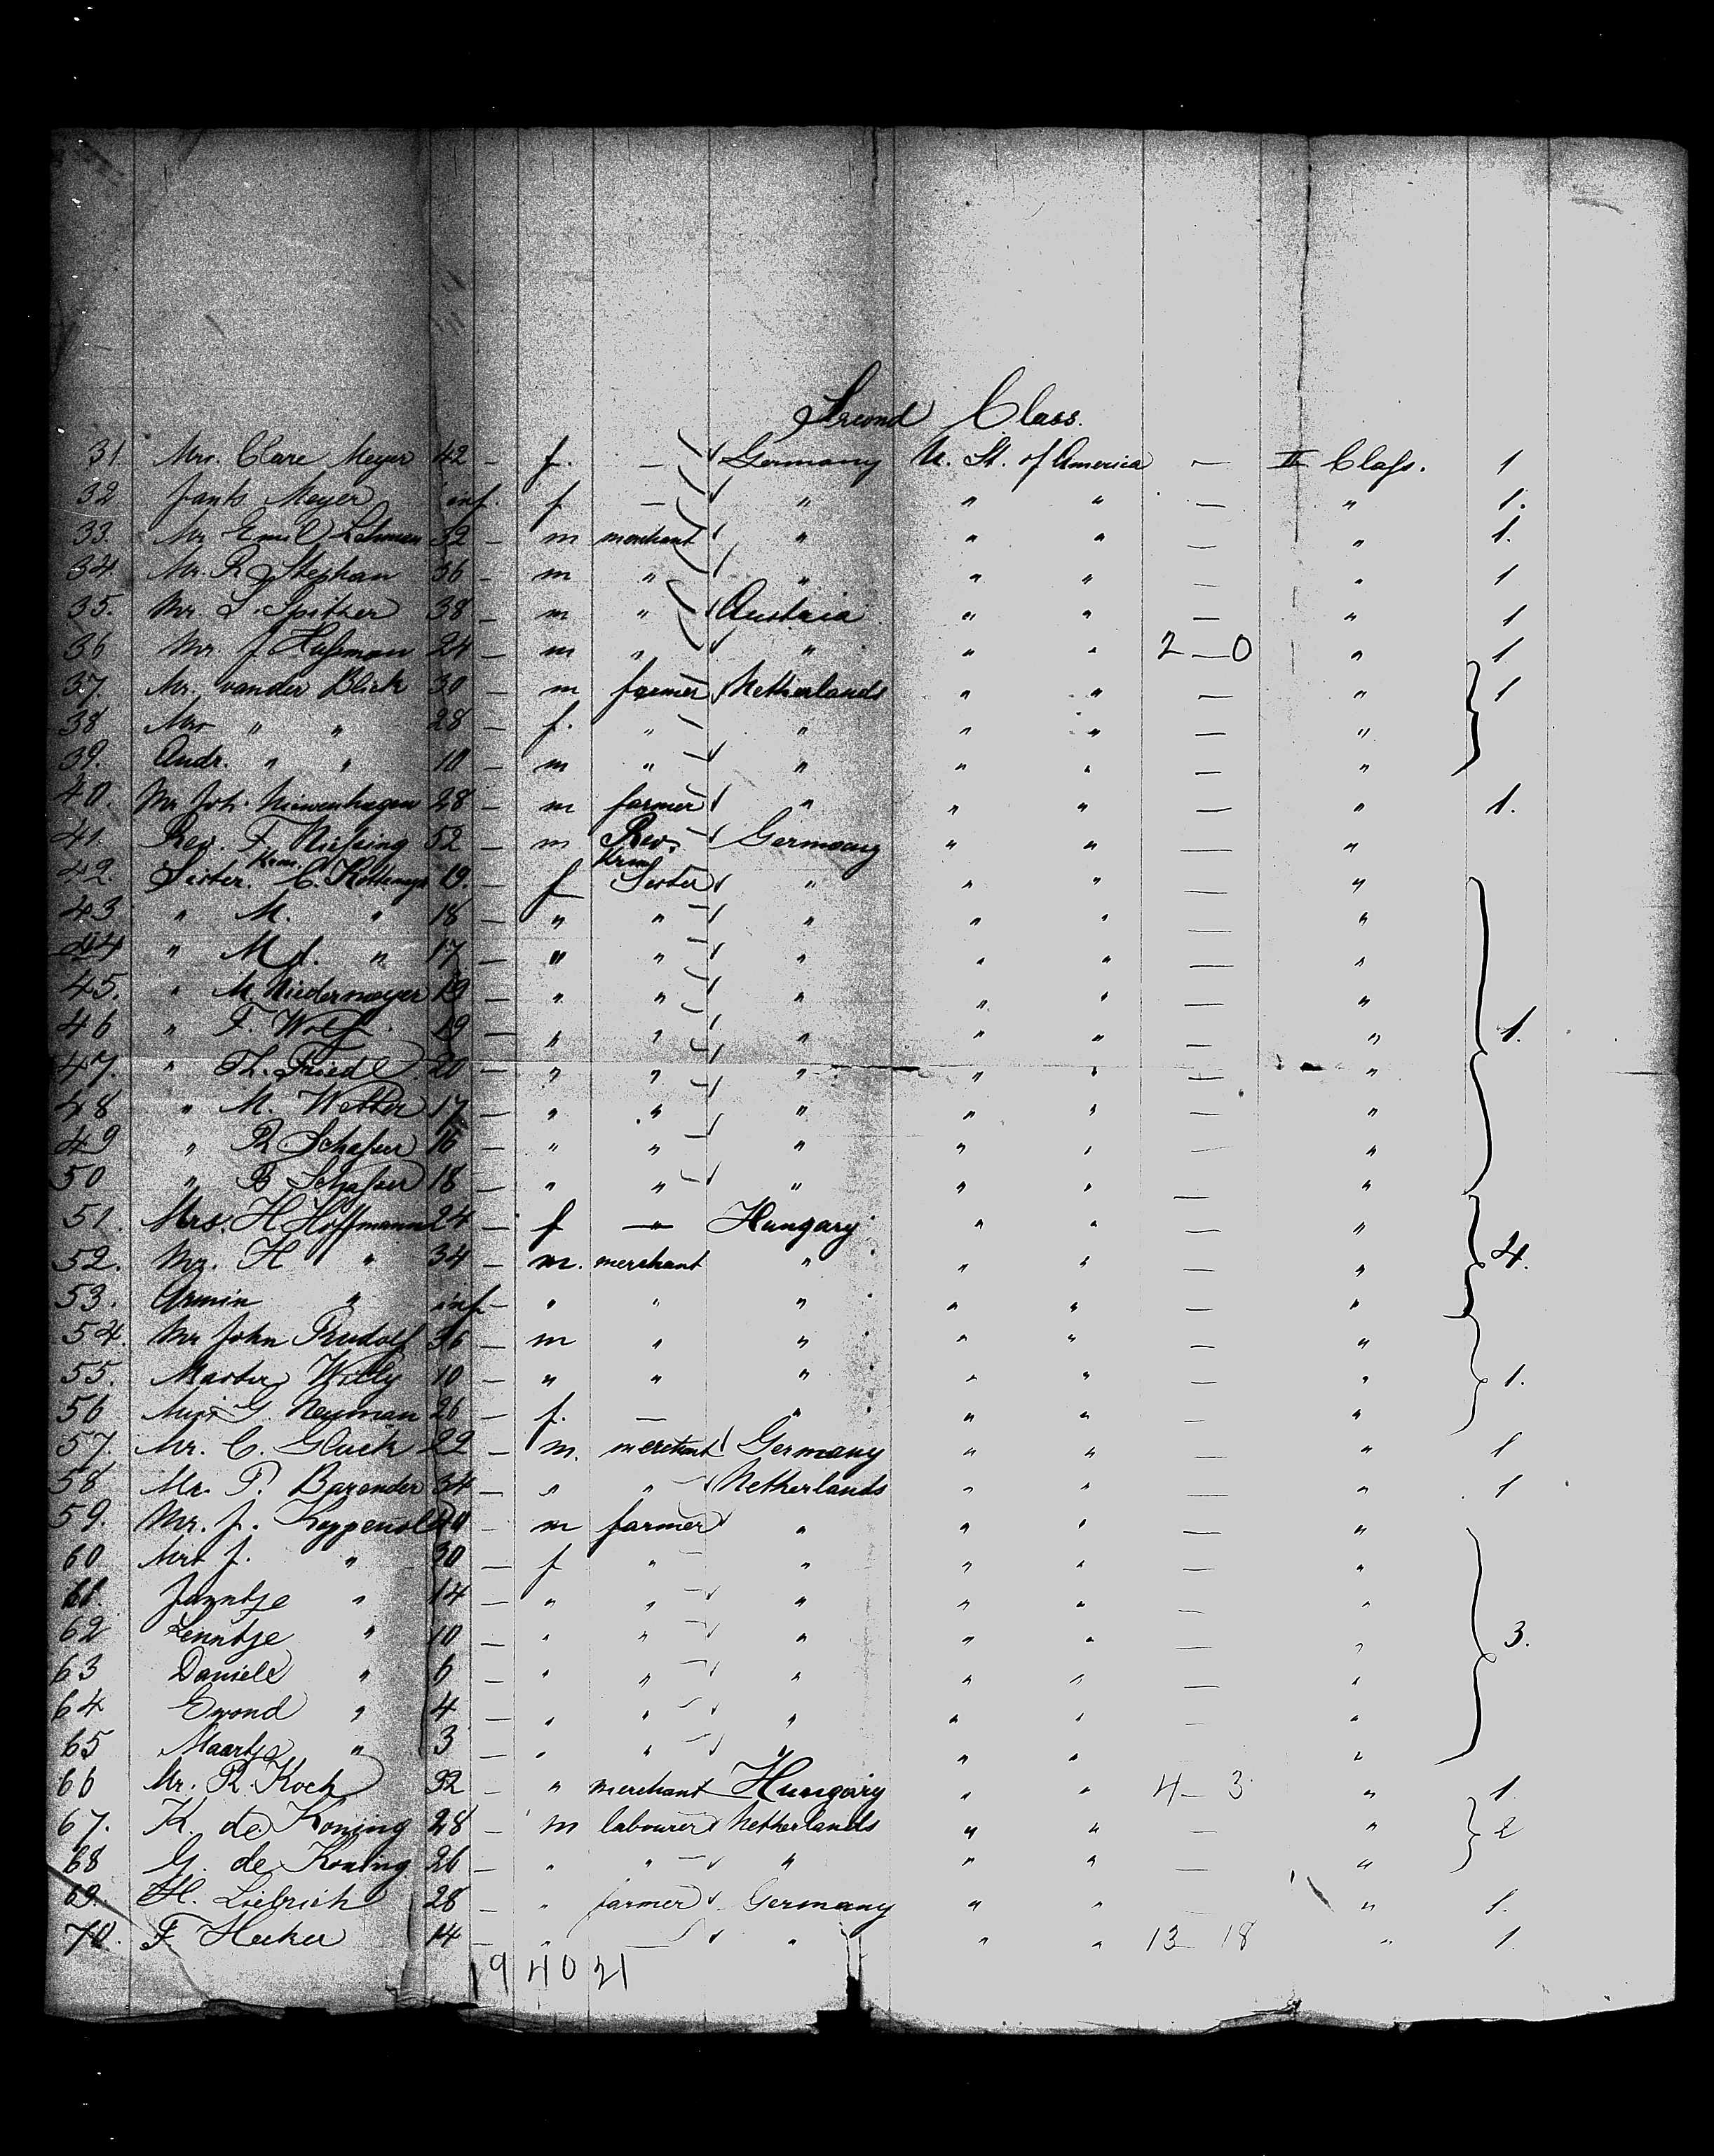 Second Class.
31. Mrs. Clare Meyer 42 — f. — Germany U. St. of America — II Class. 1
32 Meyer inf. f — " " " — " 1.
33. Mr Emil Lehman 32 — m merchant " " " — " 1.
34. Mr. R. Stephan 36 — m " " " " — " 1
35. Mr. L. Spitzer 38 — m " Austria " " — " 1
36 Mr J. Hußman 24 — m " " " " 2—0 " 1
37. Mr. vander Blick 30 — m farmer Netherlands " " — " 1
38 Mrs " " 28 — f. " " " " — "
39. Andr. " " 10 — m " " " " — "
40. Mr Joh. Niewenhagen 28 — m farmer " " " — " 1.
41. Rev. F. Nießing 52 — m Rev. Germany " " — "
42. Sister. C. 19. — f Sister " " " — "
43 " M. " 18 — " " " " " — "
44 " M. J. " 17 — " " " " " — "
45. " M. Niedermeyer 19 — " " " " " — "
46 " F. Wolf. 19 — " " " " " — " 1.
47. " Th. Friedl 20 — " " " " " — "
48 " M. Weber 17 — " " " " " — "
49 " R. Schafer 16 — " " " " " — "
50 " B Schafer 18 — " " " " " — "
51. Mrs. H Hoffmann 24 — f — Hungary " " — "
52. Mr. H " 34 — m. merchant " " " — " 4.
53. Armin " inf — " " " " " — "
54. Mr John Rudolf 36 — m " " " " — "
55. Master Willy 10 — " " " " " — " 1.
56 Miss G. Neuman 26 — f. — " " " — "
57. Mr. C. Gluck 22 — m. merchant Germany " " — " 1
58 Mr. P. Barender 34 — " " Netherlands " " — " 1
59. Mr. J. 40 — m farmer " " " — "
60 Mrs J. " 30 — f " " " " — "
61. Janntje " 14 — " " " " " — "
62 Lenntje " 10 — " " " " " — " 3.
63 Daniel " 6 — " " " " " — "
64 Ewond " 4 — " " " " " — "
65 Maartje " 3 — " " " " " — "
66 Mr. R. Koch 32 " merchant Hungary " " 4—3 " 1
67. K. de Koning 28 — m labourer Netherlands " " — " 2
68 G. de Koning 26 — " " " " " — "
69. H. Liebrich 28 — " farmer Germany " " — " 1.
70. F. Hecker 14 — " — " " " 13—18 " 1.
19 40 21